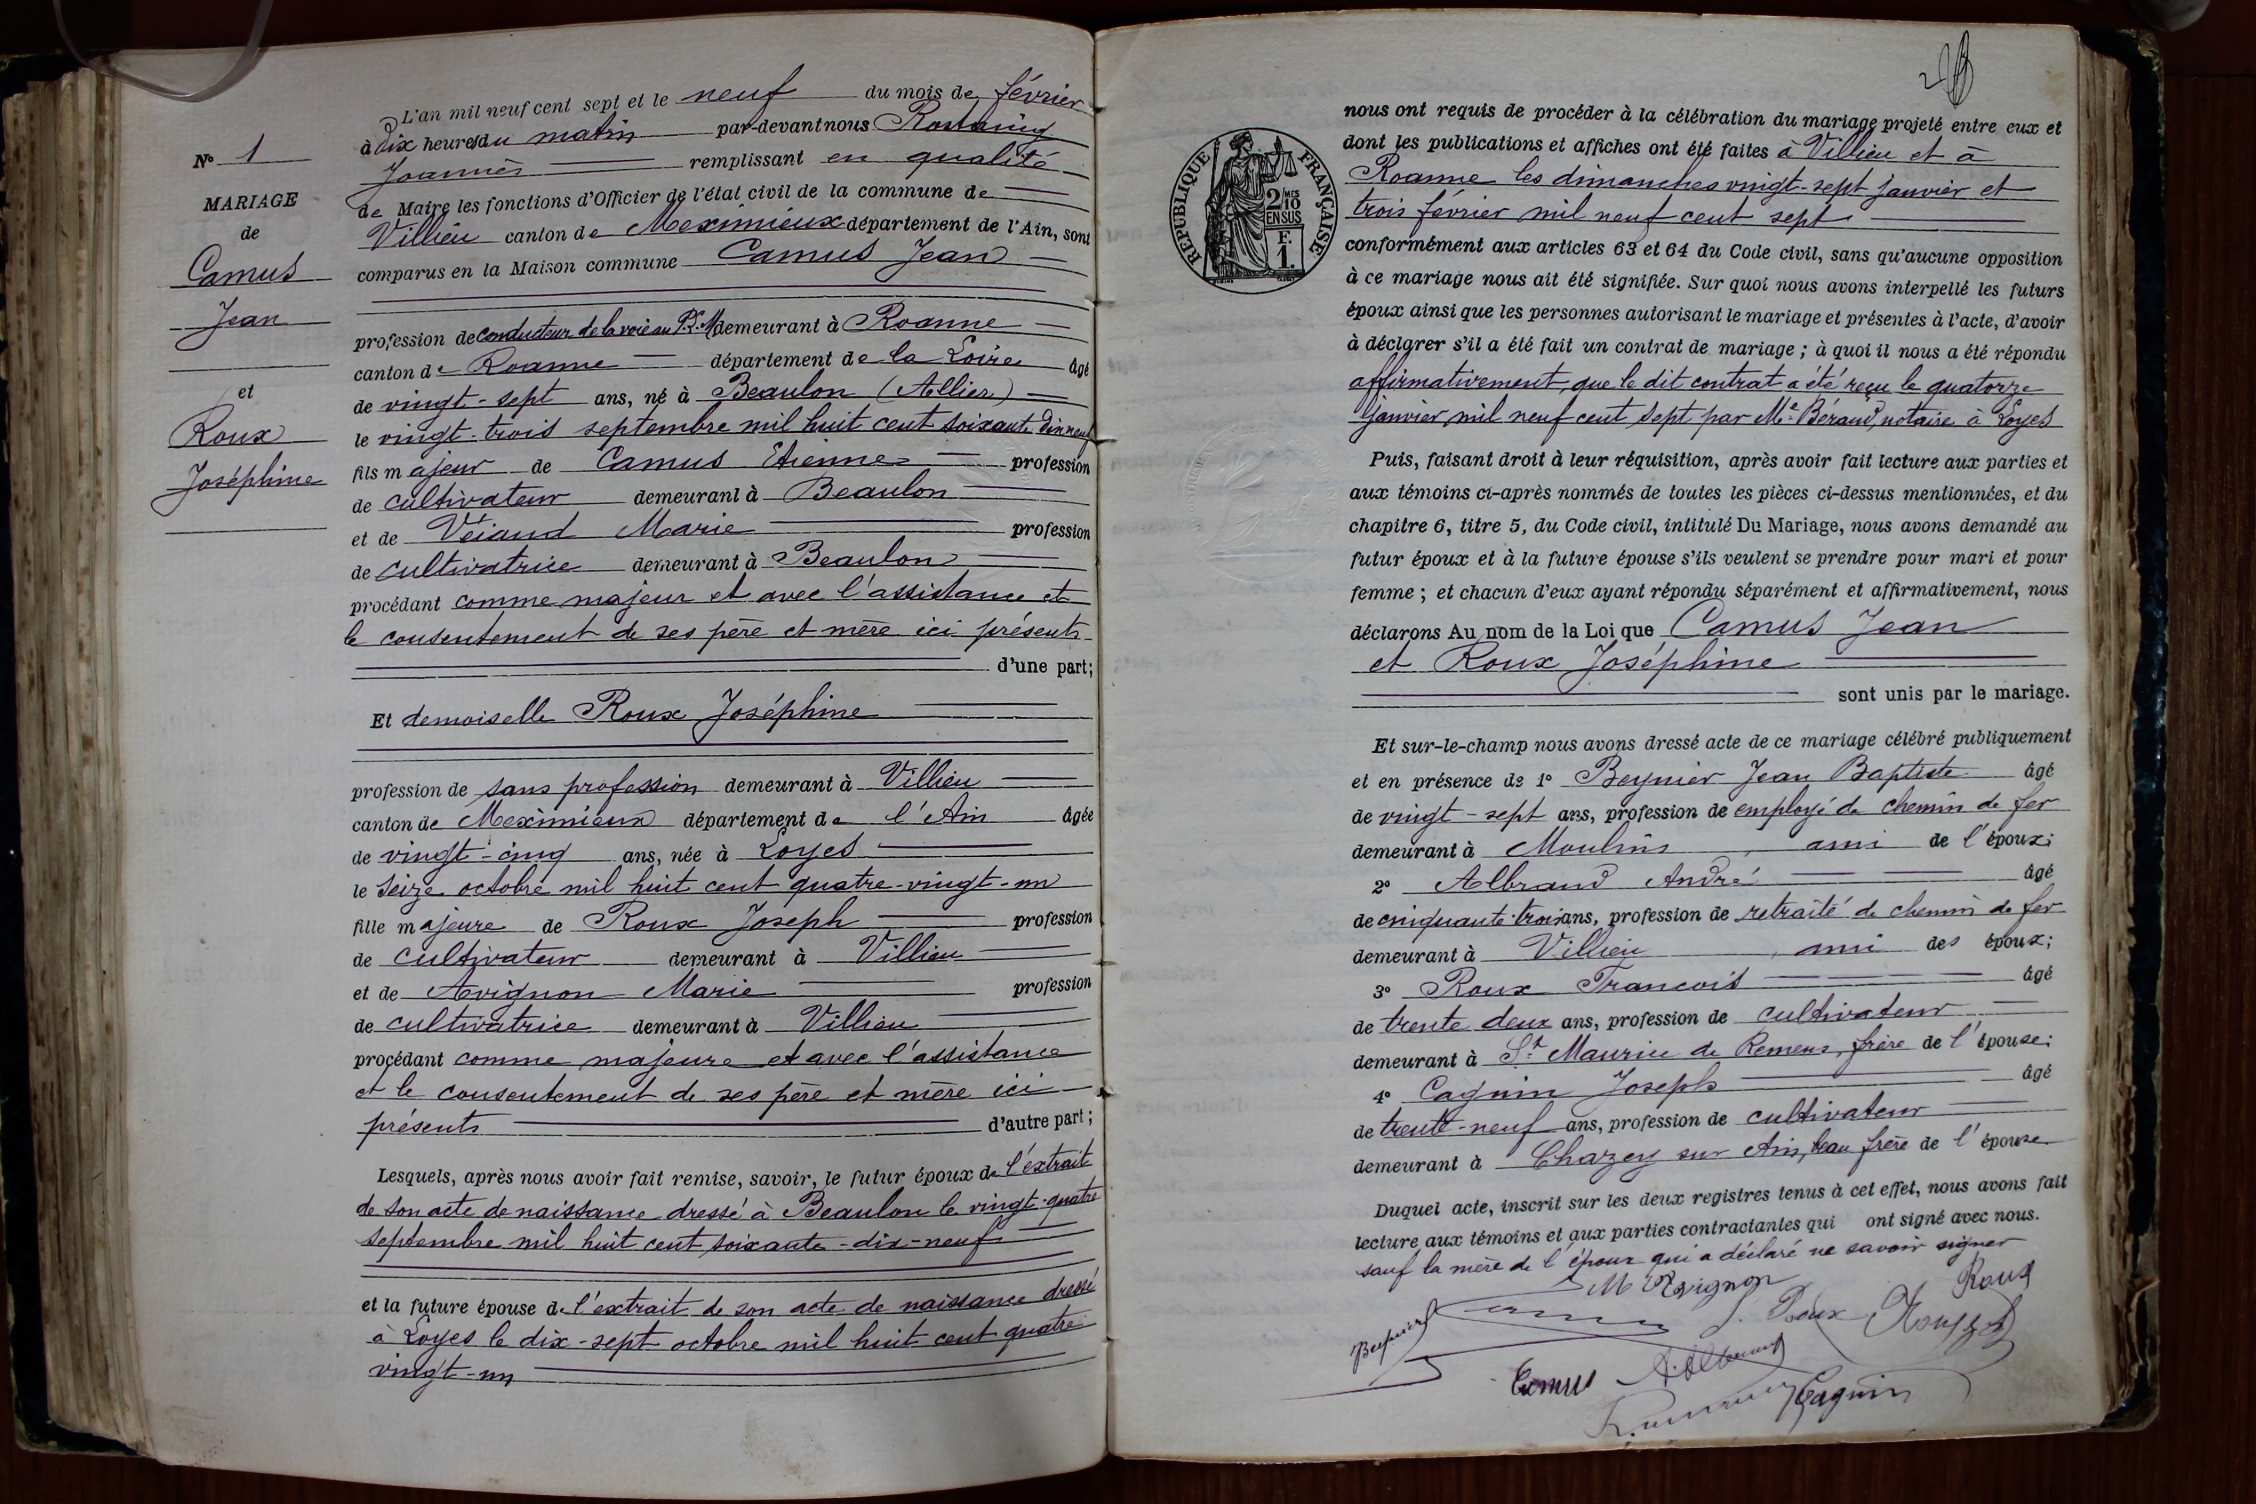 N° 1
MARIAGE
de
Camus
Jean
et
Roux
Joséphine
L'an mil neuf cent sept et le neuf du mois de février
à dix heures du matin par-devant nous Rostaing
Joannès remplissant en qualité
de Maire les fonctions d'Officier de l'état civil de la commune de
Villieu canton de Meximieux département de l'Ain, sont
comparus en la Maison commune Camus Jean
profession de conducteur de la voie au P.L.M demeurant à Roanne
canton de Roanne département de la Loire âgé
de vingt-sept ans, né à Beaulon (Allier)
le vingt-trois septembre mil huit cent soixante dix neuf
fils majeur de Camus Etienne profession
de cultivateur demeurant à Beaulon
et de Marie profession
de cultivatrice demeurant à Beaulon
procédant comme majeur et avec l'assistance et
le consentement de ses père et mère ici présents
d'une part;
Et demoiselle Roux Joséphine
profession de sans profession demeurant à Villieu
canton de Meximieux département de l'Ain âgée
de vingt-cinq ans, née à Loyes
le seize octobre mil huit cent quatre-vingt-un
fille majeure de Roux Joseph profession
de cultivateur demeurant à Villieu
et de Avignon Marie profession
de cultivatrice demeurant à Villieu
procédant comme majeure et avec l'assistance
et le consentement de ses père et mère ici
présents d'autre part;
Lesquels, après nous avoir fait remise, savoir, le futur époux de l'extrait
de son acte de naissance dressé à Beaulon le vingt-quatre
septembre mil huit cent soixante-dix-neuf
et la future épouse de l'extrait de son acte de naissance dressé
à Loyes le dix-sept octobre mil huit cent quatre
vingt-un
RÉPUBLIQUE FRANÇAISE
2/10 MES
EN SUS
F.
1.
nous ont requis de procéder à la célébration du mariage projeté entre eux et
dont les publications et affiches ont été faites à Villieu et à
Roanne les dimanches vingt-sept janvier et
trois février mil neuf cent sept
conformément aux articles 63 et 64 du Code civil, sans qu'aucune opposition
à ce mariage nous ait été signifiée. Sur quoi nous avons interpellé les futurs
époux ainsi que les personnes autorisant le mariage et présentes à l'acte, d'avoir
à déclarer s'il a été fait un contrat de mariage; à quoi il nous a été répondu
affirmativement, que le dit contrat a été reçu le quatorze
janvier mil neuf cent sept par Me Béraud, notaire à Loyes
Puis, faisant droit à leur réquisition, après avoir fait lecture aux parties et
aux témoins ci-après nommés de toutes les pièces ci-dessus mentionnées, et du
chapitre 6, titre 5, du Code civil, intitulé Du Mariage, nous avons demandé au
futur époux et à la future épouse s'ils veulent se prendre pour mari et pour
femme; et chacun d'eux ayant répondu séparément et affirmativement, nous
déclarons Au nom de la Loi que Camus Jean
et Roux Joséphine
sont unis par le mariage.
Et sur-le-champ nous avons dressé acte de ce mariage célébré publiquement
et en présence de 1° Beynier Jean Baptiste âgé
de vingt-sept ans, profession de employé de chemin de fer
demeurant à Moulins, ami de l'époux;
2° Albrand André âgé
de cinquante-trois ans, profession de retraité de chemin de fer
demeurant à Villieu, ami des époux;
3° Roux Francois âgé
de trente deux ans, profession de cultivateur
demeurant à St Maurice de Remens, frère de l'épouse;
4° Cagnin Joseph âgé
de trente-neuf ans, profession de cultivateur
demeurant à Chazey sur Ain, beau frère de l'épouse
Duquel acte, inscrit sur les deux registres tenus à cet effet, nous avons fait
lecture aux témoins et aux parties contractantes qui ont signé avec nous.
sauf la mère de l'époux qui a déclaré ne savoir signer
M Avignon
Roux
J. Roux
Beynier
Camus
A. Albrand
Cagnin